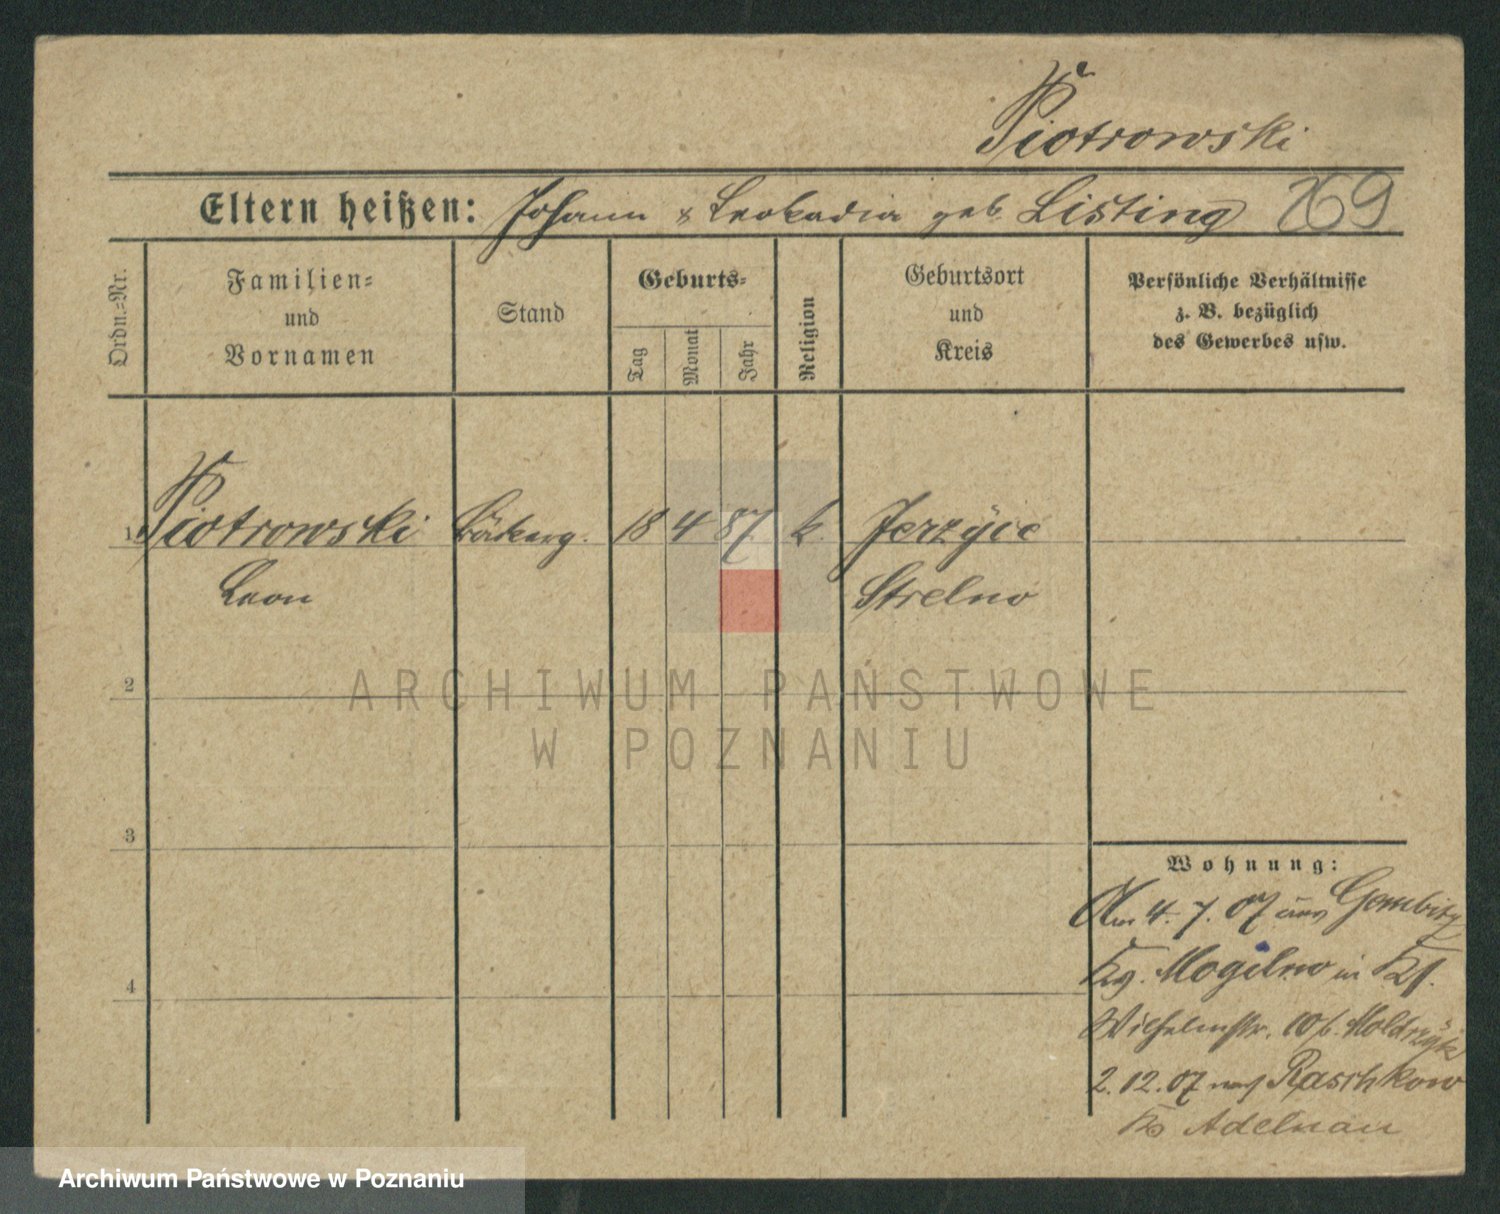 Piotrowski
Eltern heißen: Johann & Leokadia geb. Listing 269
Ordn.=Nr.
Familien=
und
Vornamen
Stand
Geburts=
Tag
Monat
Jahr
Religion
Geburtsort
und
Kreis
Persönliche Verhältnisse
z. B. bezüglich
des Gewerbes usw.
1 Piotrowski Bäckerg. 18 4 87 k. Jerzyce
Leon Strelno
2
3
4
Wohnung:
Am 4. 7. 07 aus Gembitz
Krs. Mogilno in
Wilhelmstr. 10 b.
2. 12. 07 nach Raschkow
Kr. Adelnau
ARCHIWUM PAŃSTWOWE
W POZNANIU
Archiwum Państwowe w Poznaniu